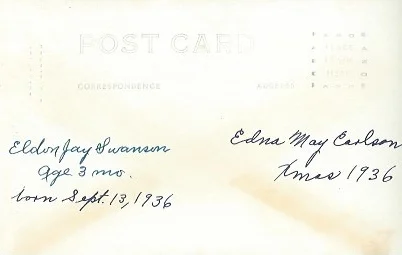 POST CARD
CORRESPONDENCE
ADDRESS
PLACE
STAMP
HERE
Eldon Jay Swanson
age 3 mo.
born Sept. 13, 1936
Edna May Carlson
Xmas 1936